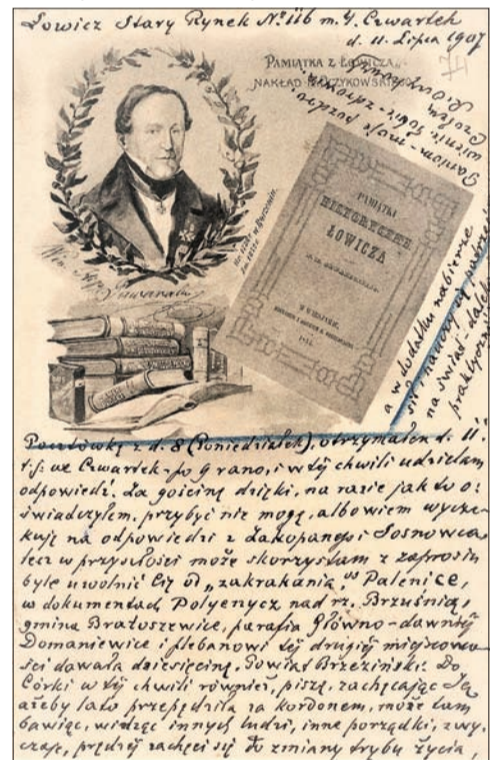 Łowicz Stary Rynek N. 116 m. 4. Czwartek
d. 11. Lipca 1907
74
PAMIĄTKA Z ŁOWICZA
NAKŁAD
PAMIĄTKI
HISTORYCZNE
ŁOWICZA
W KRAKOWIE,
a w dodatku nabierze
się i nauczy się patrzeć
na świat - daleko
praktyczniej
Pocztówkę z d. 8 (Poniedziałek), otrzymałem d. 11.
t.j. we Czwartek - po 9 rano, i w tej chwili udzielam
odpowiedź. Za gościnę dzięki, na razie jak to o-
świadczyłem, przybyć nie mogę, albowiem wycze-
kuję na odpowiedzi z Zakopanego i Sosnowca
lecz w przyszłości może skorzystam z zaprosin
byle uwolnić się od "zakrakania" Palenice,
w dokumentach Polyenycz nad rz. Brzuśnią,
gmina Bratoszewice, parafia Główno - dawniej
Domaniewice i plebanowi tej drugiej miejscowo-
ści dawała dziesięcinę. Powiat Brzeziński. Do
Córki w tej chwili również, piszę, zachęcając Ją
ażeby lato przepędziła za kordonem, może tam
bawiąc, widząc innych ludzi, inne porządki, zwy-
czaje, prędzej zachęci się do zmiany trybu życia,